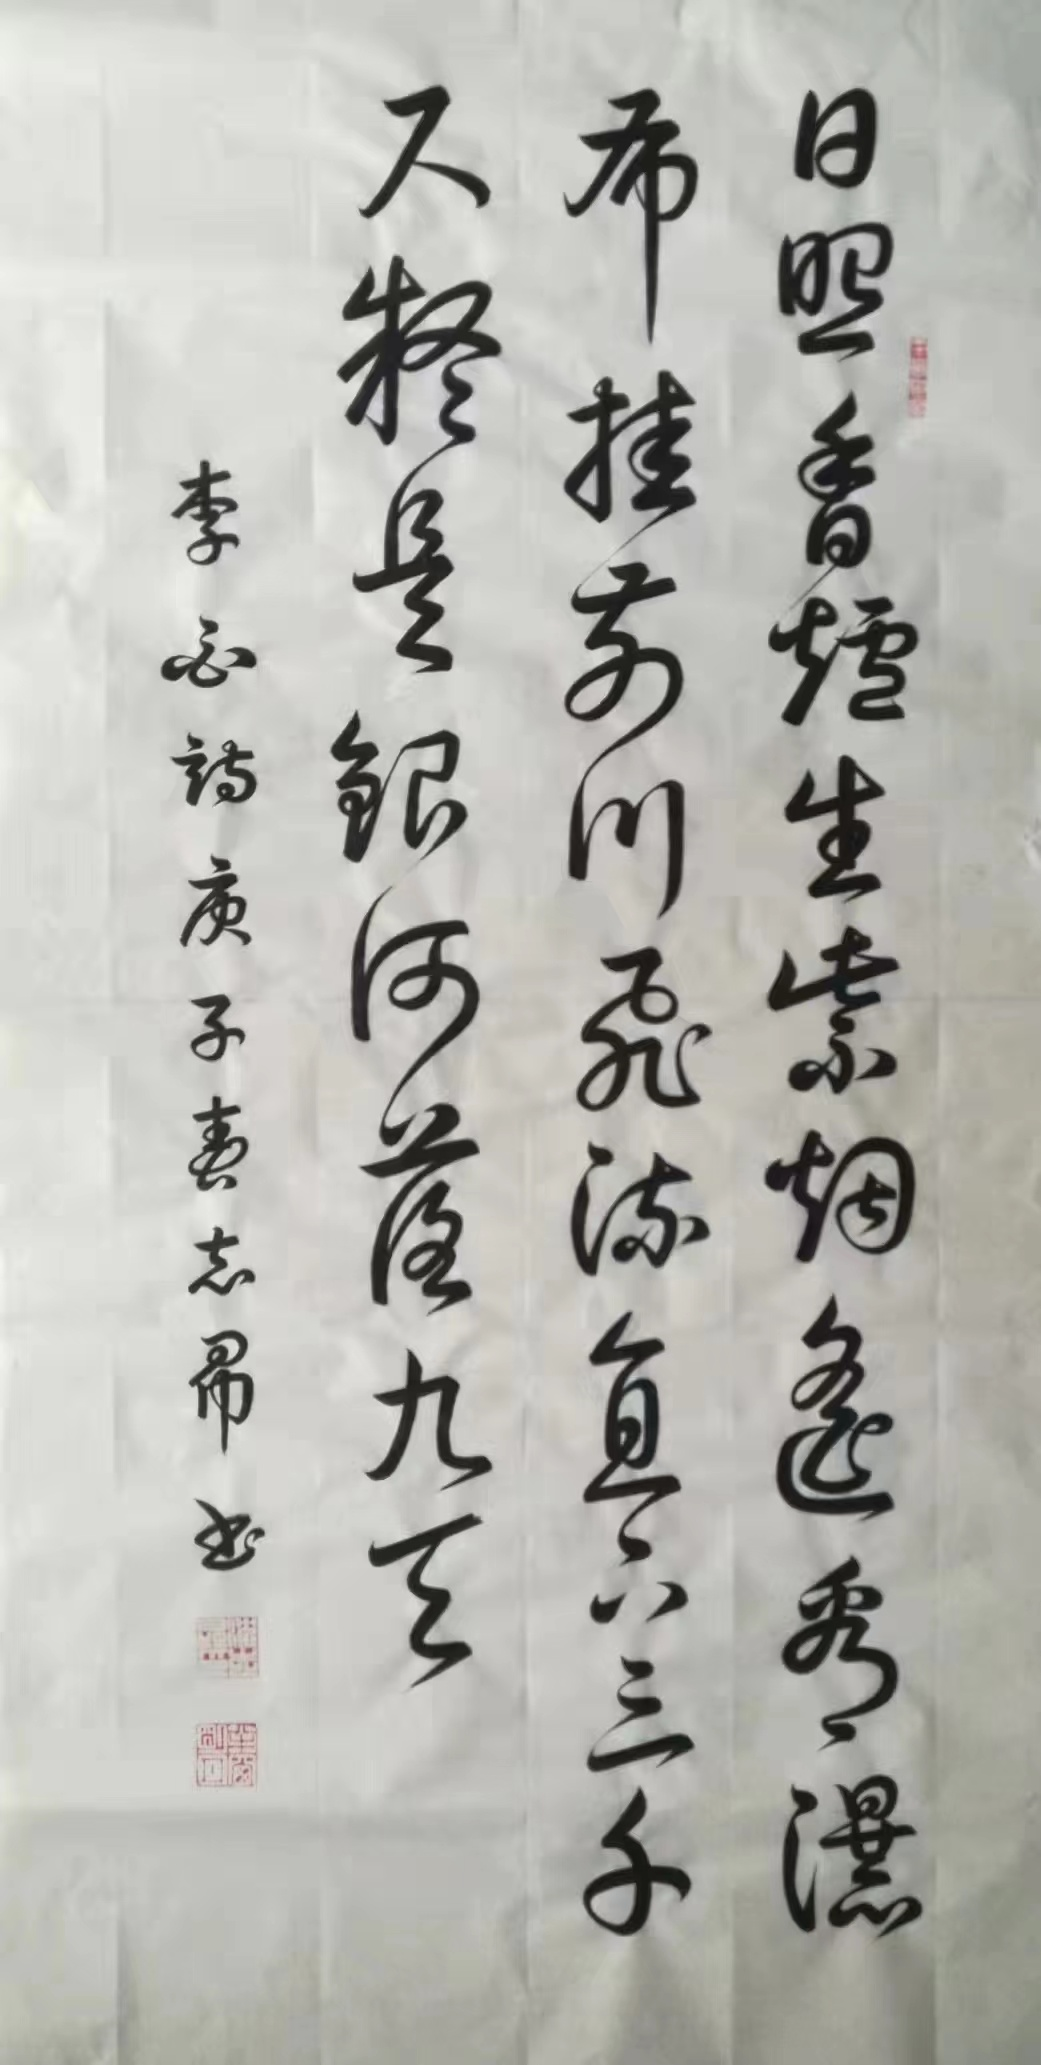 日照香爐生紫烟遙看瀑
布挂前川飛流直下三千
尺疑是銀河落九天
李白詩庚子春志书